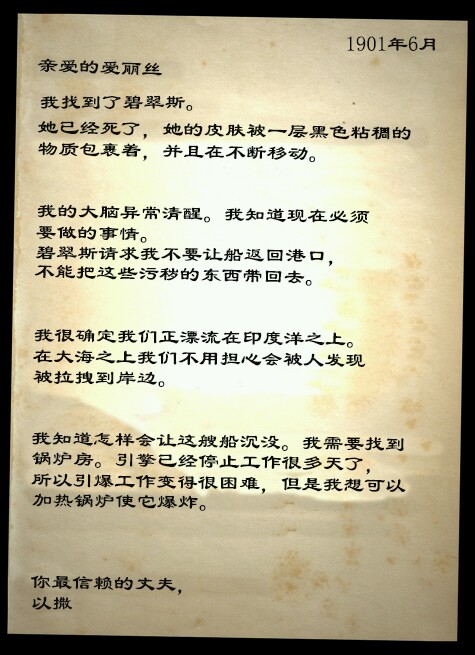 1901年6月
亲爱的爱丽丝
我找到了碧翠斯。
她已经死了，她的皮肤被一层黑色粘稠的
物质包裹着，并且在不断移动。
我的大脑异常清醒。我知道现在必须
要做的事情。
碧翠斯请求我不要让船返回港口，
不能把这些污秽的东西带回去。
我很确定我们正漂流在印度洋之上。
在大海之上我们不用担心会被人发现
被拉拽到岸边。
我知道怎样会让这艘船沉没。我需要找到
锅炉房。引擎已经停止工作很多天了，
所以引爆工作变得很困难，但是我想可以
加热锅炉使它爆炸。
你最信赖的丈夫，
以撒